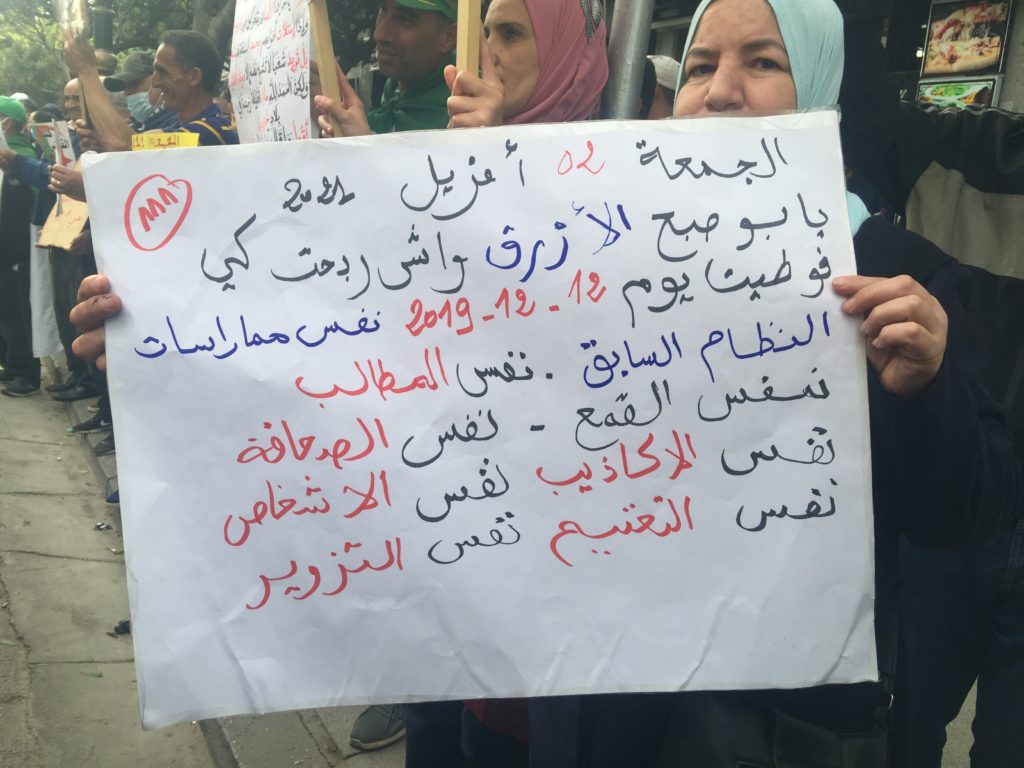 الجمعة 02 أفريل 2021
111
يا بو صبع الأزرق واش ربحت كي
فوطيت يوم 12-12-2019 نفس مماراسات
النظام السابق . نفس المطالب
نفس القمع - نفس الصحافة
نفس الاكاذيب نفس الاشخاص
نفس التعتيم نفس التزوير